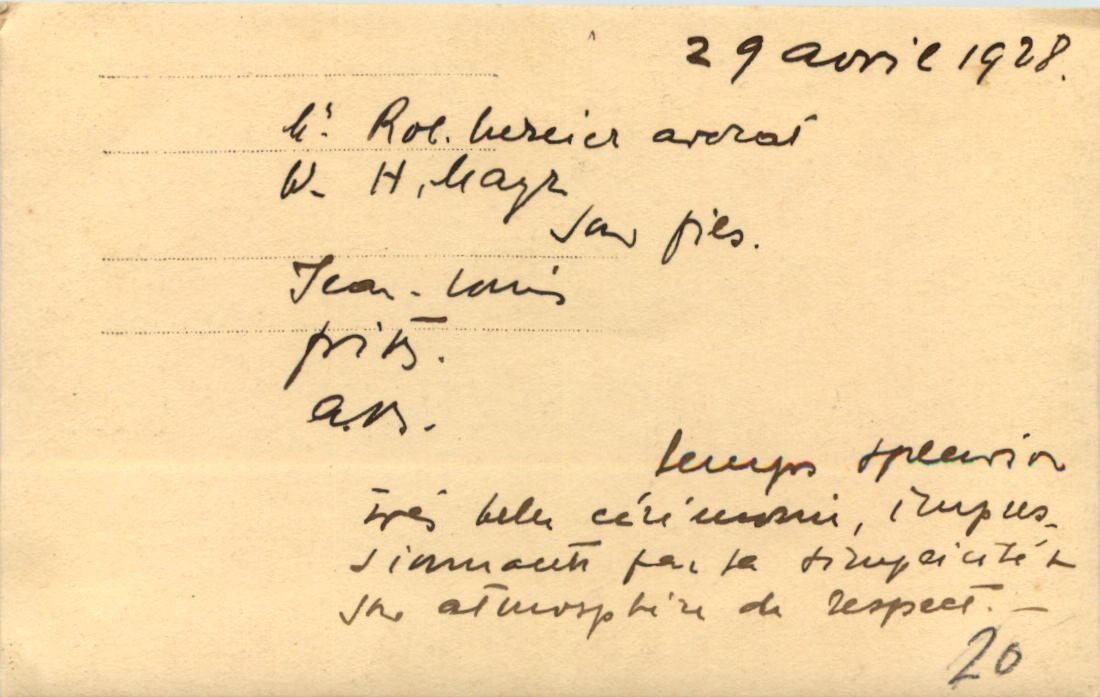 29 avril 1928.
Mr. Rob. Mercier avocat
W. H. Mayr
son fils.
Jean-Louis
fritz.
a.B.
temps splendide
très belle cérémonie, impres-
sionnante par sa simplicité &
son atmosphère de respect. —
20